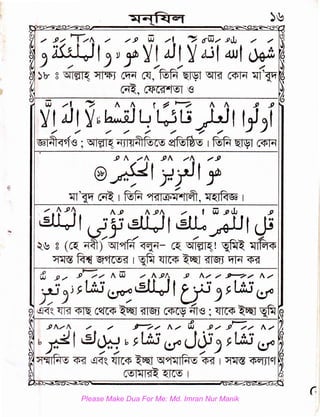 মানযিল ১৭
شَهِدَ اللهُ أَنَّهُ لَا إِلَٰهَ إِلَّا هُوَ وَالْمَلَٰئِكَةُ
১৮ ঃ আল্লাহ সাক্ষ্য দেন যে, তিনি ছাড়া আর কোন মা'বুদ
নেই, ফেরেশতা ও
وَأُولُوا الْعِلْمِ قَائِمًا بِالْقِسْطِ لَا إِلَٰهَ إِلَّا
জ্ঞানীবর্গও ; আল্লাহ ন্যায়নীতিতে প্রতিষ্ঠিত । তিনি ছাড়া কোন
هُوَ الْعَزِيزُ الْحَكِيمُ
মা'বুদ নেই । তিনি পরাক্রমশালী, মহাবিজ্ঞ ।
قُلِ اللَّهُمَّ مَالِكَ الْمُلْكِ تُؤْتِي الْمُلْكَ
২৬ ঃ (হে নবী) আপনি বলুন- হে আল্লাহ! তুমিই মালিক
সমস্ত বিশ্ব জগতের । তুমি যাকে ইচ্ছা রাজ্য দান কর
مَنْ تَشَاءُ وَتَنْزِعُ الْمُلْكَ مِمَّنْ تَشَاءُ وَتُعِزُّ
এবং যার কাছ থেকে ইচ্ছা রাজ্য কেড়ে নাও ; যাকে ইচ্ছা তুমি
مَنْ تَشَاءُ وَتُذِلُّ مَنْ تَشَاءُ بِيَدِكَ الْخَيْرُ
সম্মানিত কর এবং যাকে ইচ্ছা অপমানিত কর । সমস্ত কল্যাণ
তোমারই হাতে ।
Please Make Dua For Me. Md. Imran Nur Manik